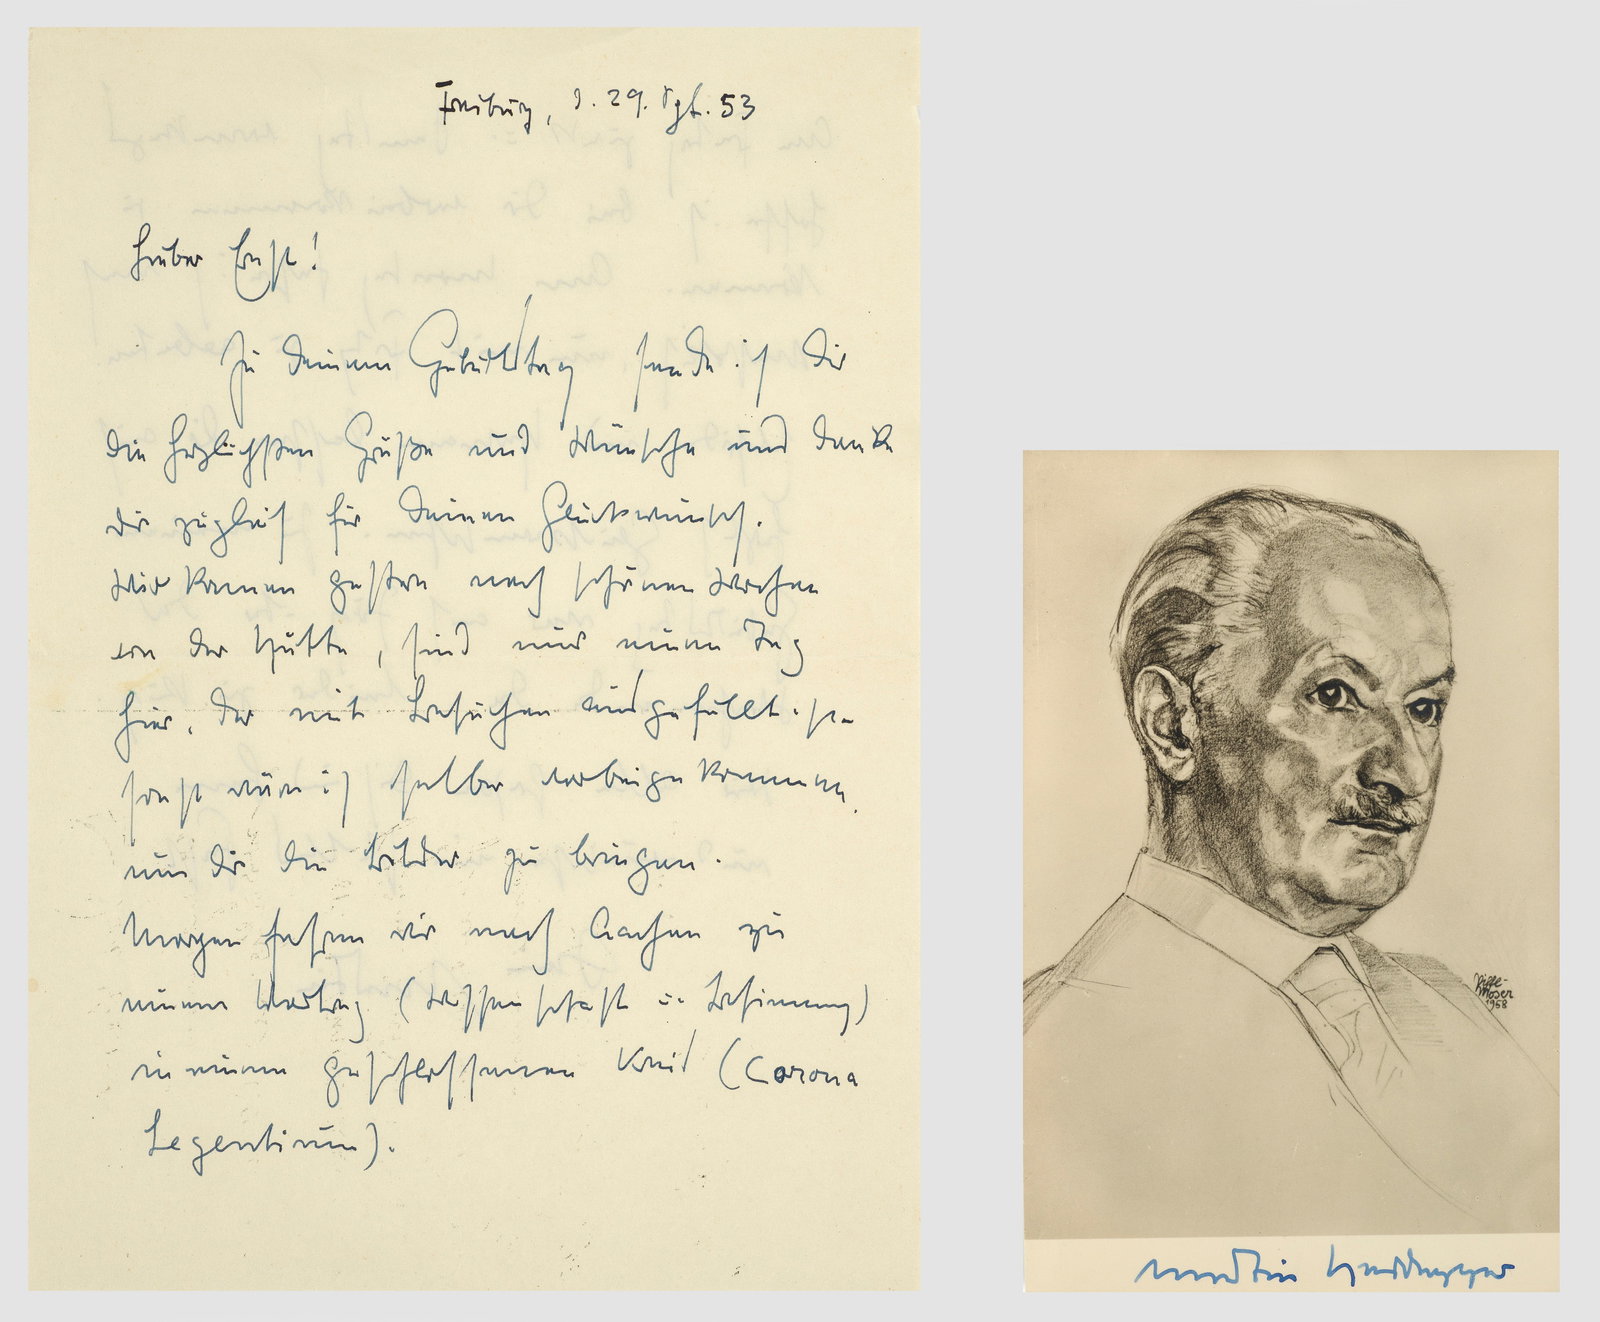 Freiburg, d. 29. Spt. 53
Lieber Ernst!
Zu Deinem Geburtstag sende ich Dir
die herzlichsten Grüße und Wünsche und danke
Dir zugleich für Deinen Glückwunsch.
Wir kamen gestern nach schönen Wochen
von der Hütte, sind nur einen Tag
hier, der mit Besuchen ausgefüllt ist
sonst wäre ich selber vorbeigekommen,
um Dir die Bilder zu bringen.
Morgen fahren wir nach Aachen zu
einem Vortrag (Wissenschaft u. Besinnung)
in einem geschlossenen Kreis (Corona
Legentium).
Hilde-
Moser
1958
Martin Heidegger